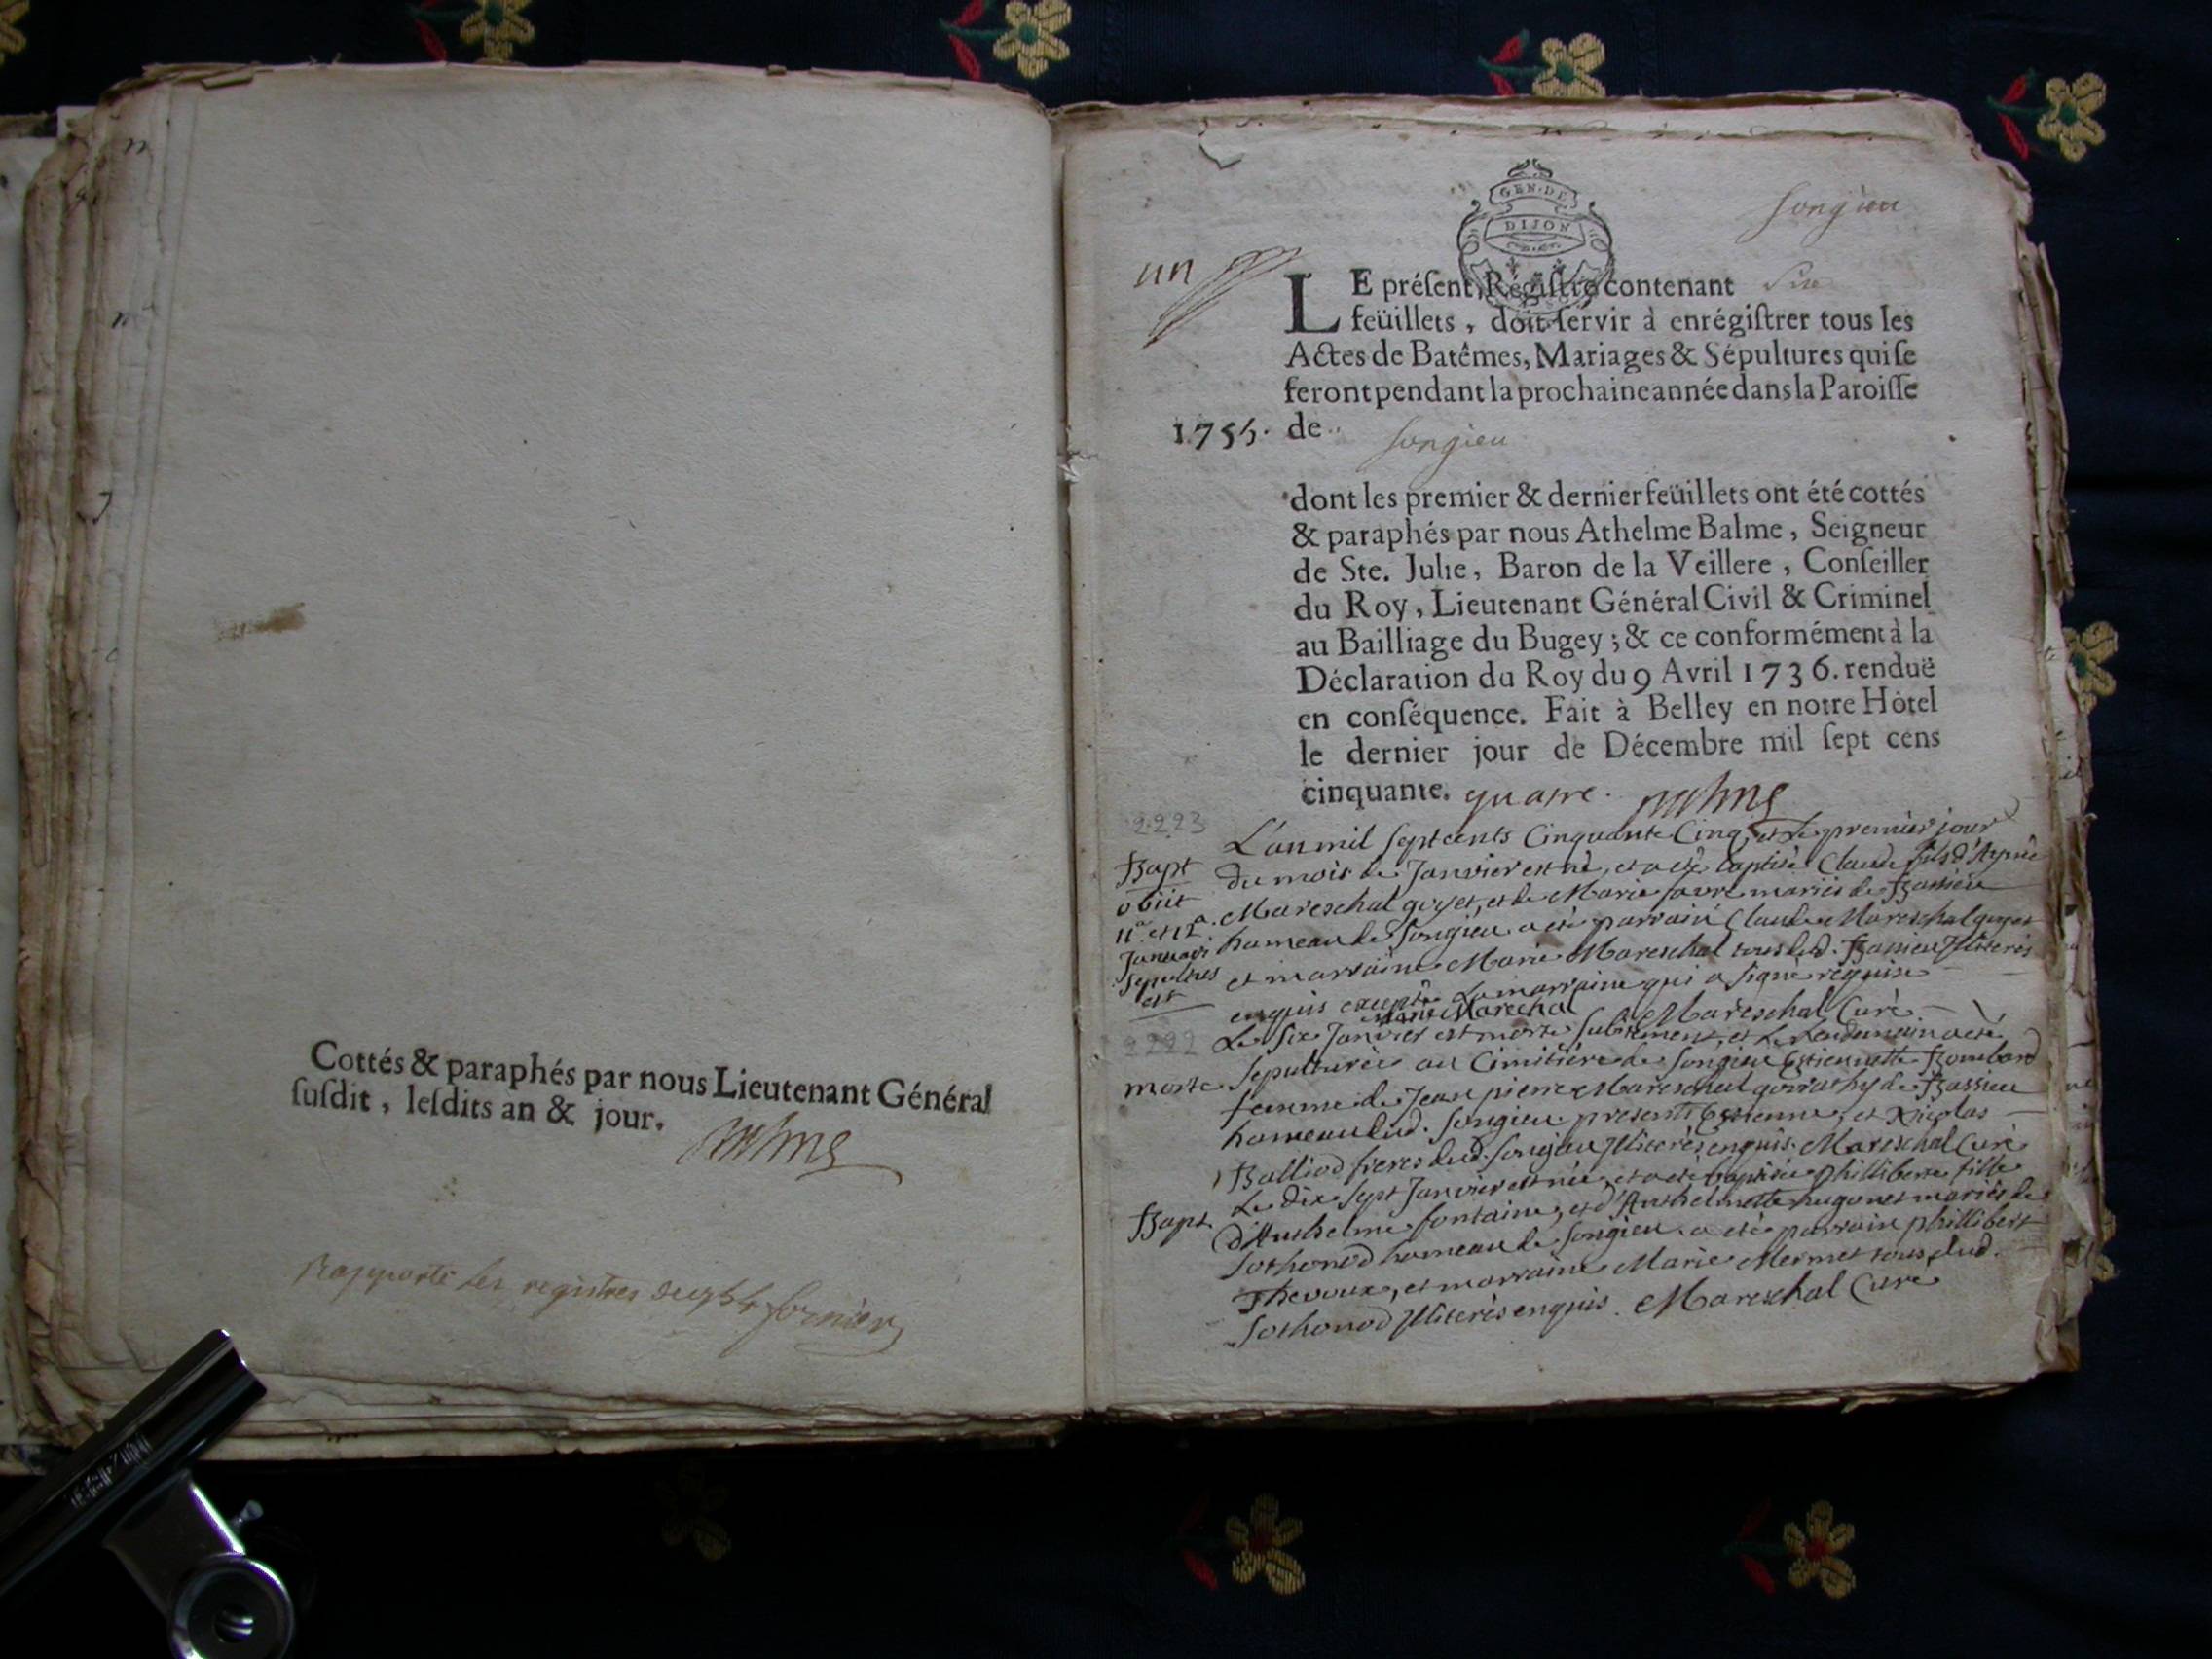 Cottés & paraphés par nous Lieutenant Général
ſuſdit, leſdits an & jour.
Rapporté les registres fornier
GEN. DE
DIJON
songieu
un
LE préſent Régiſtre contenant Six
feüillets, doit ſervir à enrégiſtrer tous les
Actes de Batêmes, Mariages & Sépultures qui ſe
feront pendant la prochaine année dans la Paroiſſe
1755. de songieu
dont les premier & dernier feüillets ont été cottés
& paraphés par nous Athelme Balme, Seigneur
de Ste. Julie, Baron de la Veillere, Conſeiller
du Roy, Lieutenant Général Civil & Criminel
au Bailliage du Bugey; & ce conformément à la
Déclaration du Roy du 9 Avril 1736. renduë
en conſéquence. Fait à Belley en notre Hôtel
le dernier jour de Décembre mil ſept cens
cinquante. quatre.
2223
L'an mil sept cents Cinquante Cinq, et le premier jour
Bapt
du mois de Janvier est né, et a eté baptisé Claude fils d'Aymé
obiit
Mareschal guyet, et de Marie favre mariés de Bassieu
11a. et 12a.
hameau de songieu a eté parrain Claude Mareschal guyet
Januarii
et marraine Marie Mareschal tous dud. Bassieu Illiterés
sepultus
enquis excepté La marraine qui a signé requise
est
Marie Marechal Mareschal Curé
2222
Le Six Janvier est morte subitement, et Le Lendemain a eté
sepulturée au Cimitiére de songieu Estiennette Bombard
morte
femme de Jean pierre Mareschal gorrathy de Bassieu
hameau dud. songieu presents Estienne, et Nicolas
Balliod freres dud. songieu Illiterés enquis. Mareschal Curé
Le dix sept Janvier est née, et a eté baptisée Philliberte fille
Bapt.
d'Anthelme fontaine, et d'Anthelmette hugonet mariés de
sothonod hameau de songieu a eté parrain phillibert
Thevoux, et marraine Marie Mermet tous dud.
sothonod Illiterés enquis. Mareschal Curé